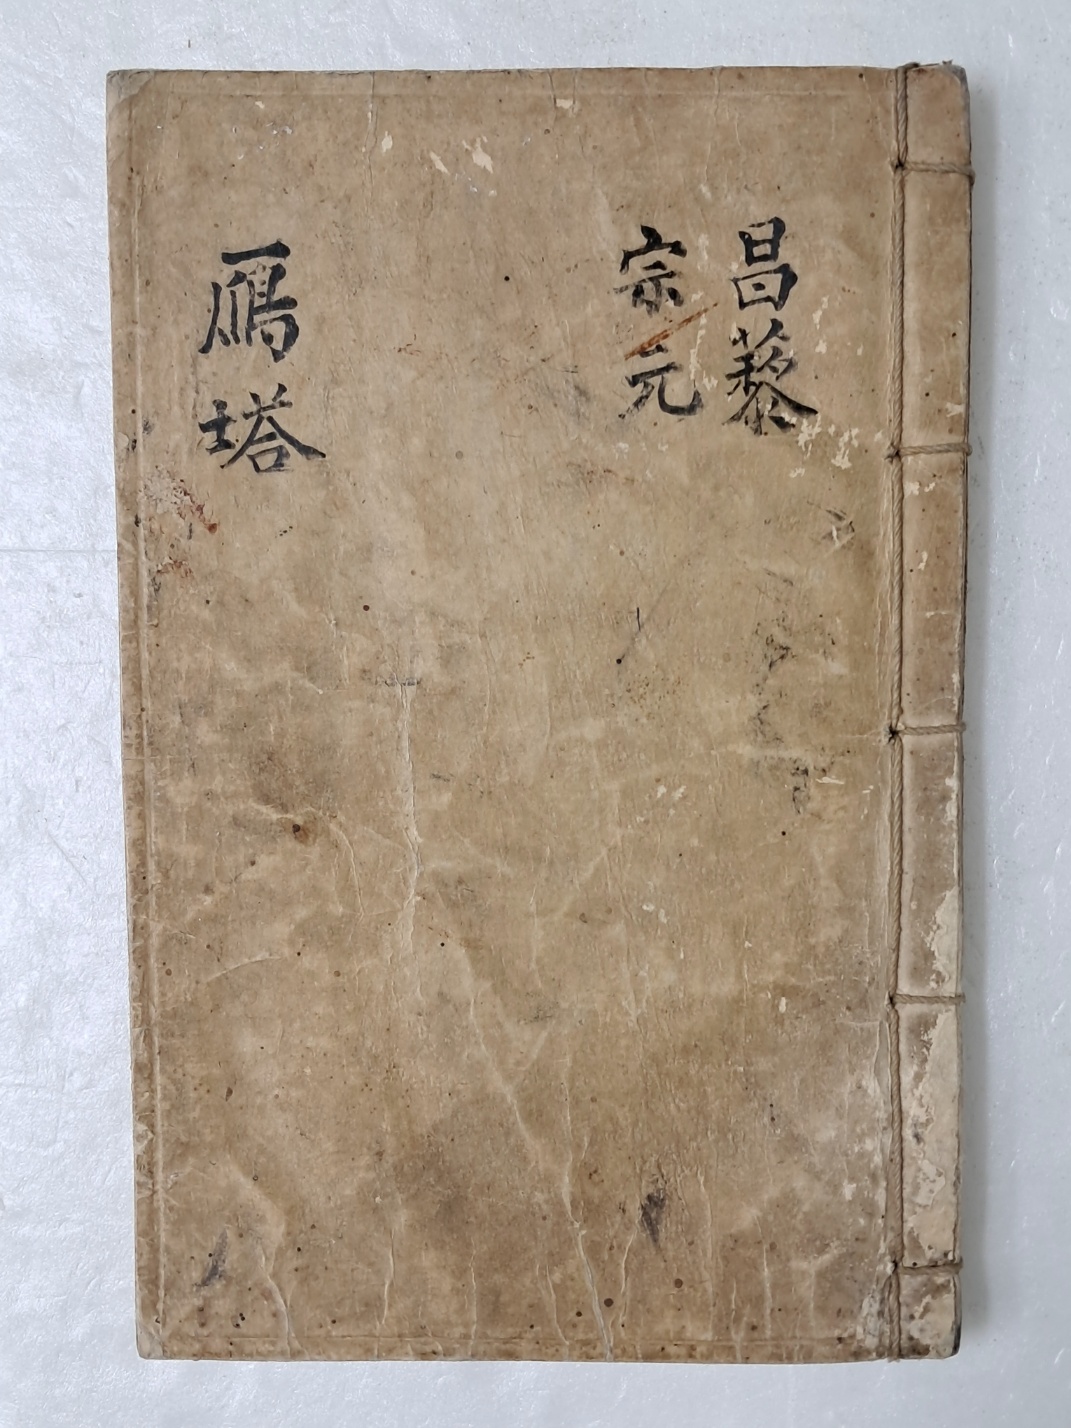 昌藜
宗元
鴈塔